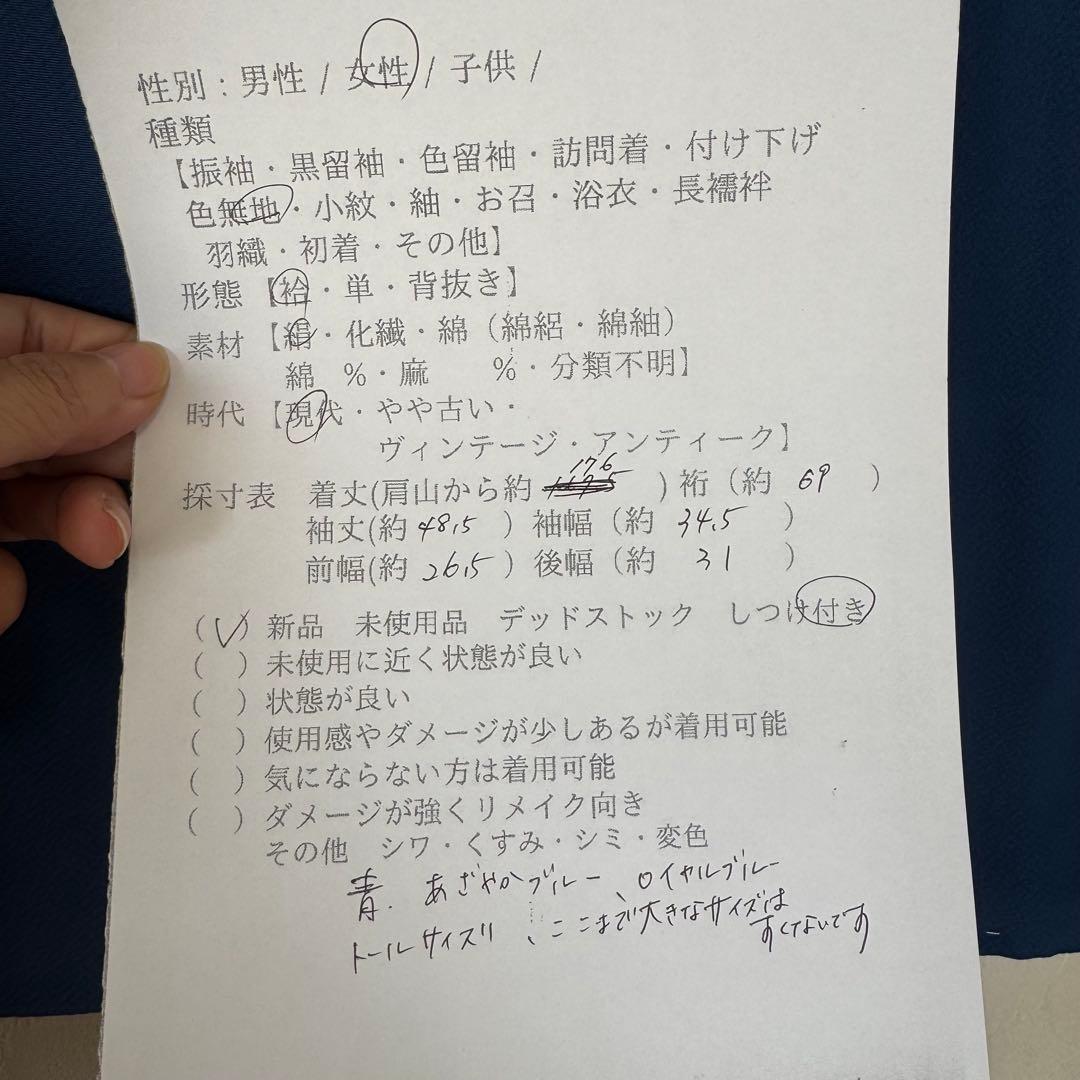 性別：男性 / 女性 / 子供 /
種類
【振袖・黒留袖・色留袖・訪問着・付け下げ
色無地・小紋・紬・お召・浴衣・長襦袢
羽織・初着・その他】
形態【袷・単・背抜き】
素材【絹・化繊・綿（綿絽・綿紬）
綿　%・麻　　%・分類不明】
時代【現代・やや古い・
ヴィンテージ・アンティーク】
採寸表　着丈(肩山から約 176 ) 裄（約 69 ）
袖丈(約 48.5 ）袖幅（約 34.5 ）
前幅(約 26.5 ）後幅（約 31 ）
（✓）新品　未使用品　デッドストック　しつけ付き
（　）未使用に近く状態が良い
（　）状態が良い
（　）使用感やダメージが少しあるが着用可能
（　）気にならない方は着用可能
（　）ダメージが強くリメイク向き
その他　シワ・くすみ・シミ・変色
青. あざやかブルー、ロイヤルブルー
トールサイズ!!、ここまで大きなサイズは
すくないです